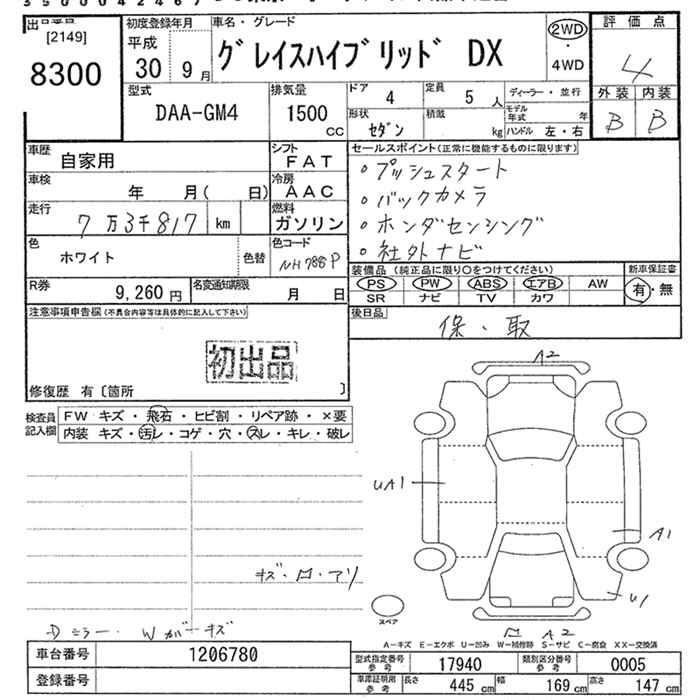 出品番号
[2149]
8300
初度登録年月
平成
30 9月
車名・グレード
グレイスハイブリッド DX
2WD
・
4WD
評価点
4
外装 内装
B B
型式
DAA-GM4
排気量
1500
CC
ドア 4
定員 5人
形状 セダン
積載 kg
ディーラー・並行
モデル年式 年
ハンドル 左・右
車歴 自家用
シフト FAT
車検 年 月( 日)
冷房 AAC
走行 7万3千817 km
燃料 ガソリン
色 ホワイト
色替
色コード NH788P
R券 9,260円
名変通知期限 月 日
セールスポイント(正常に機能するものに限ります)
・プッシュスタート
・バックカメラ
・ホンダセンシング
・社外ナビ
装備品(純正品に限り〇をつけてください)
PS PW ABS エアB AW
SR ナビ TV カワ
新車保証書
有・無
後日品
保・取
注意事項申告欄(不具合内容等は具体的に記入して下さい)
初出品
修復歴 有〔箇所 〕
検査員記入欄
FW キズ・飛石・ヒビ割・リペア跡・×要
内装 キズ・汚レ・コゲ・穴・スレ・キレ・破レ
A2
UA1
A1
U1
キズ・ロ・アリ
スペア
A2
A－キズ E－エクボ U－凹み W－補修跡 S－サビ C－腐食 XX－交換済
車台番号 1206780
登録番号
型式指定番号 参考 17940
類別区分番号 参考 0005
車庫証明用 参考 長さ 445cm 幅 169cm 高さ 147cm